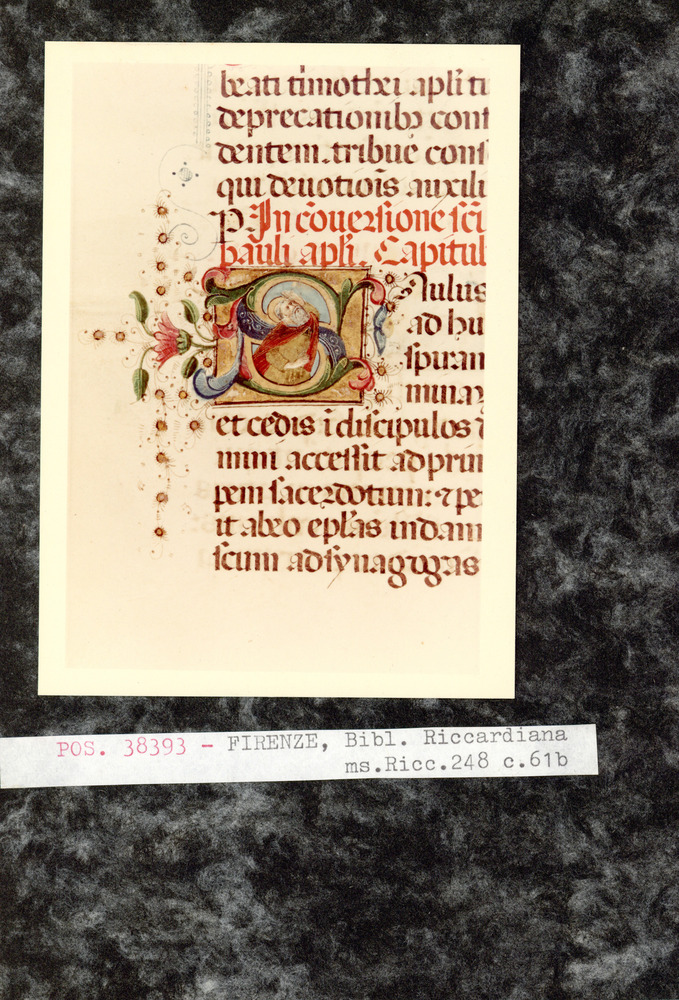 beati timothei apl̄i tu
deprecationib᷒ conf
dentem. tribue conf
qui deuotiōis auxili
P. In cōuersione sc̄i
pauli apl̄i. Capitul
Saulus
ad hu
spiran
minar
et cedis ī discipulos
mini accessit ad prin
pem sacerdotum: ⁊ pe
it ab eo epl̄as in dam
scum ad synagogas
POS. 38393 - FIRENZE, Bibl. Riccardiana
ms.Ricc.248 c.61b